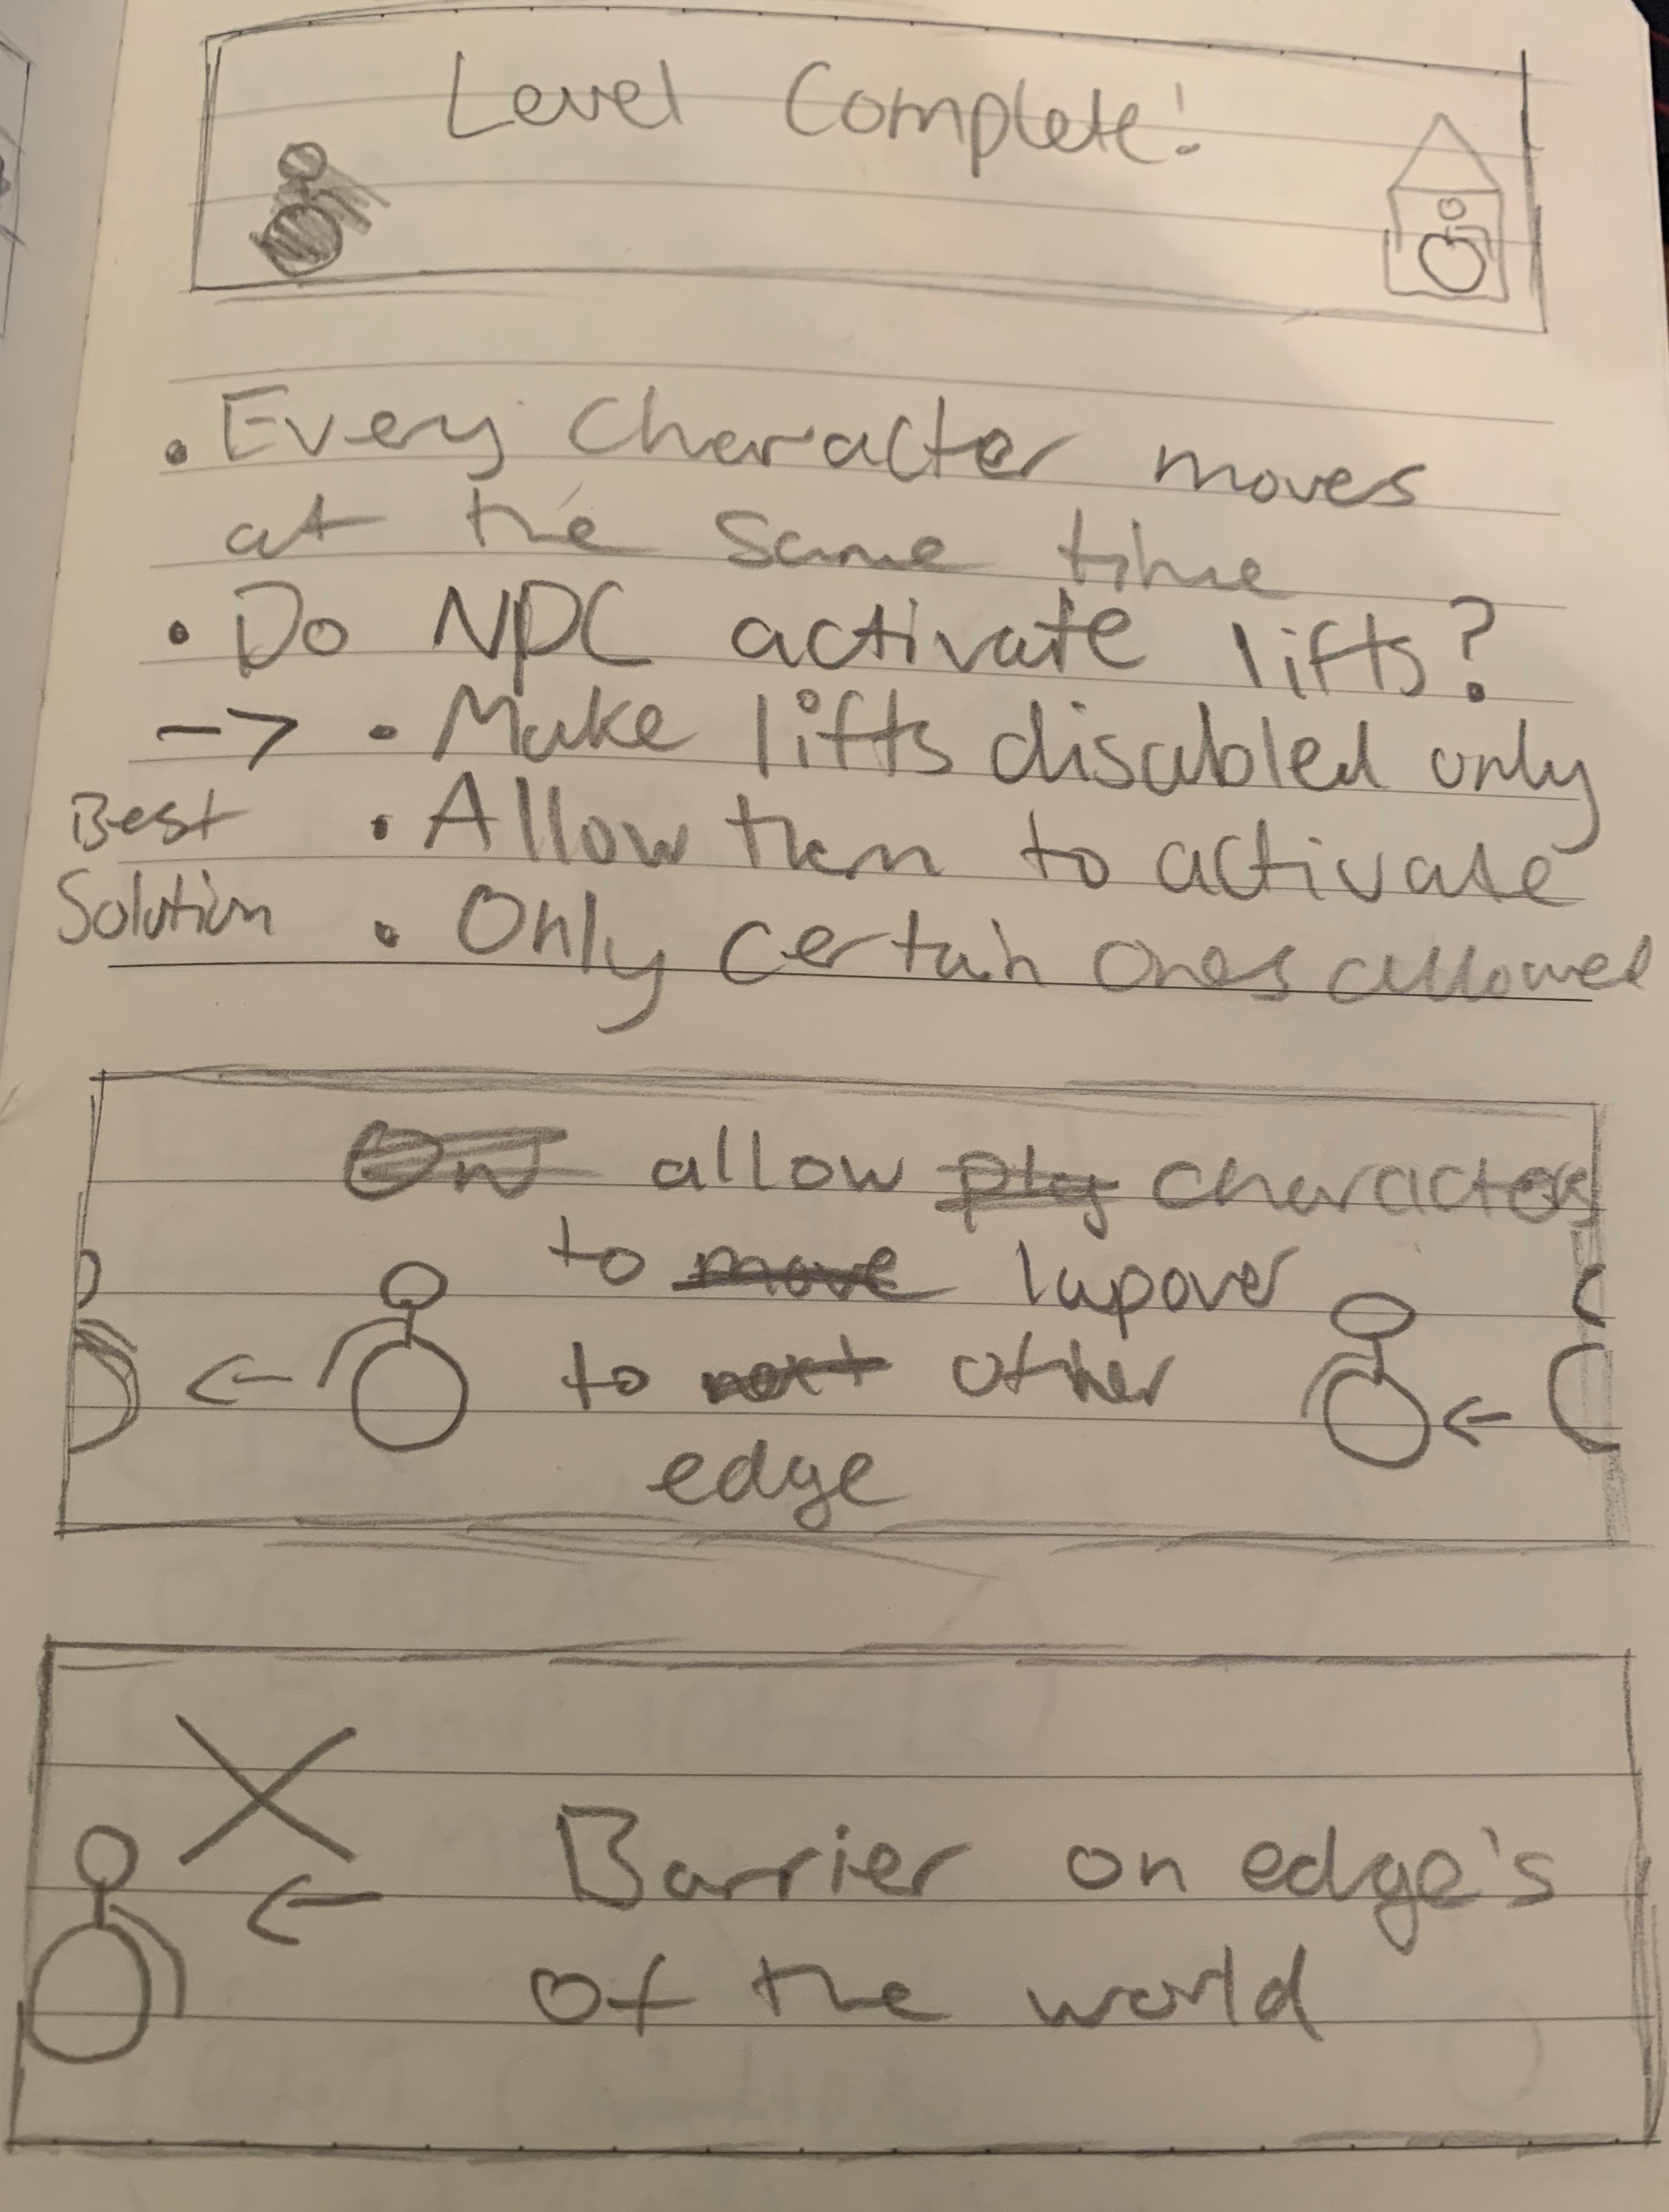 Level Complete!
• Every Character moves
at the same time
• Do NPC activate lifts?
--> • Make lifts disabled only
Best • Allow them to activate
Solution • Only certain ones allowed
allow ply characters
to move lapover
to next other
edge
Barrier on edge's
of the world